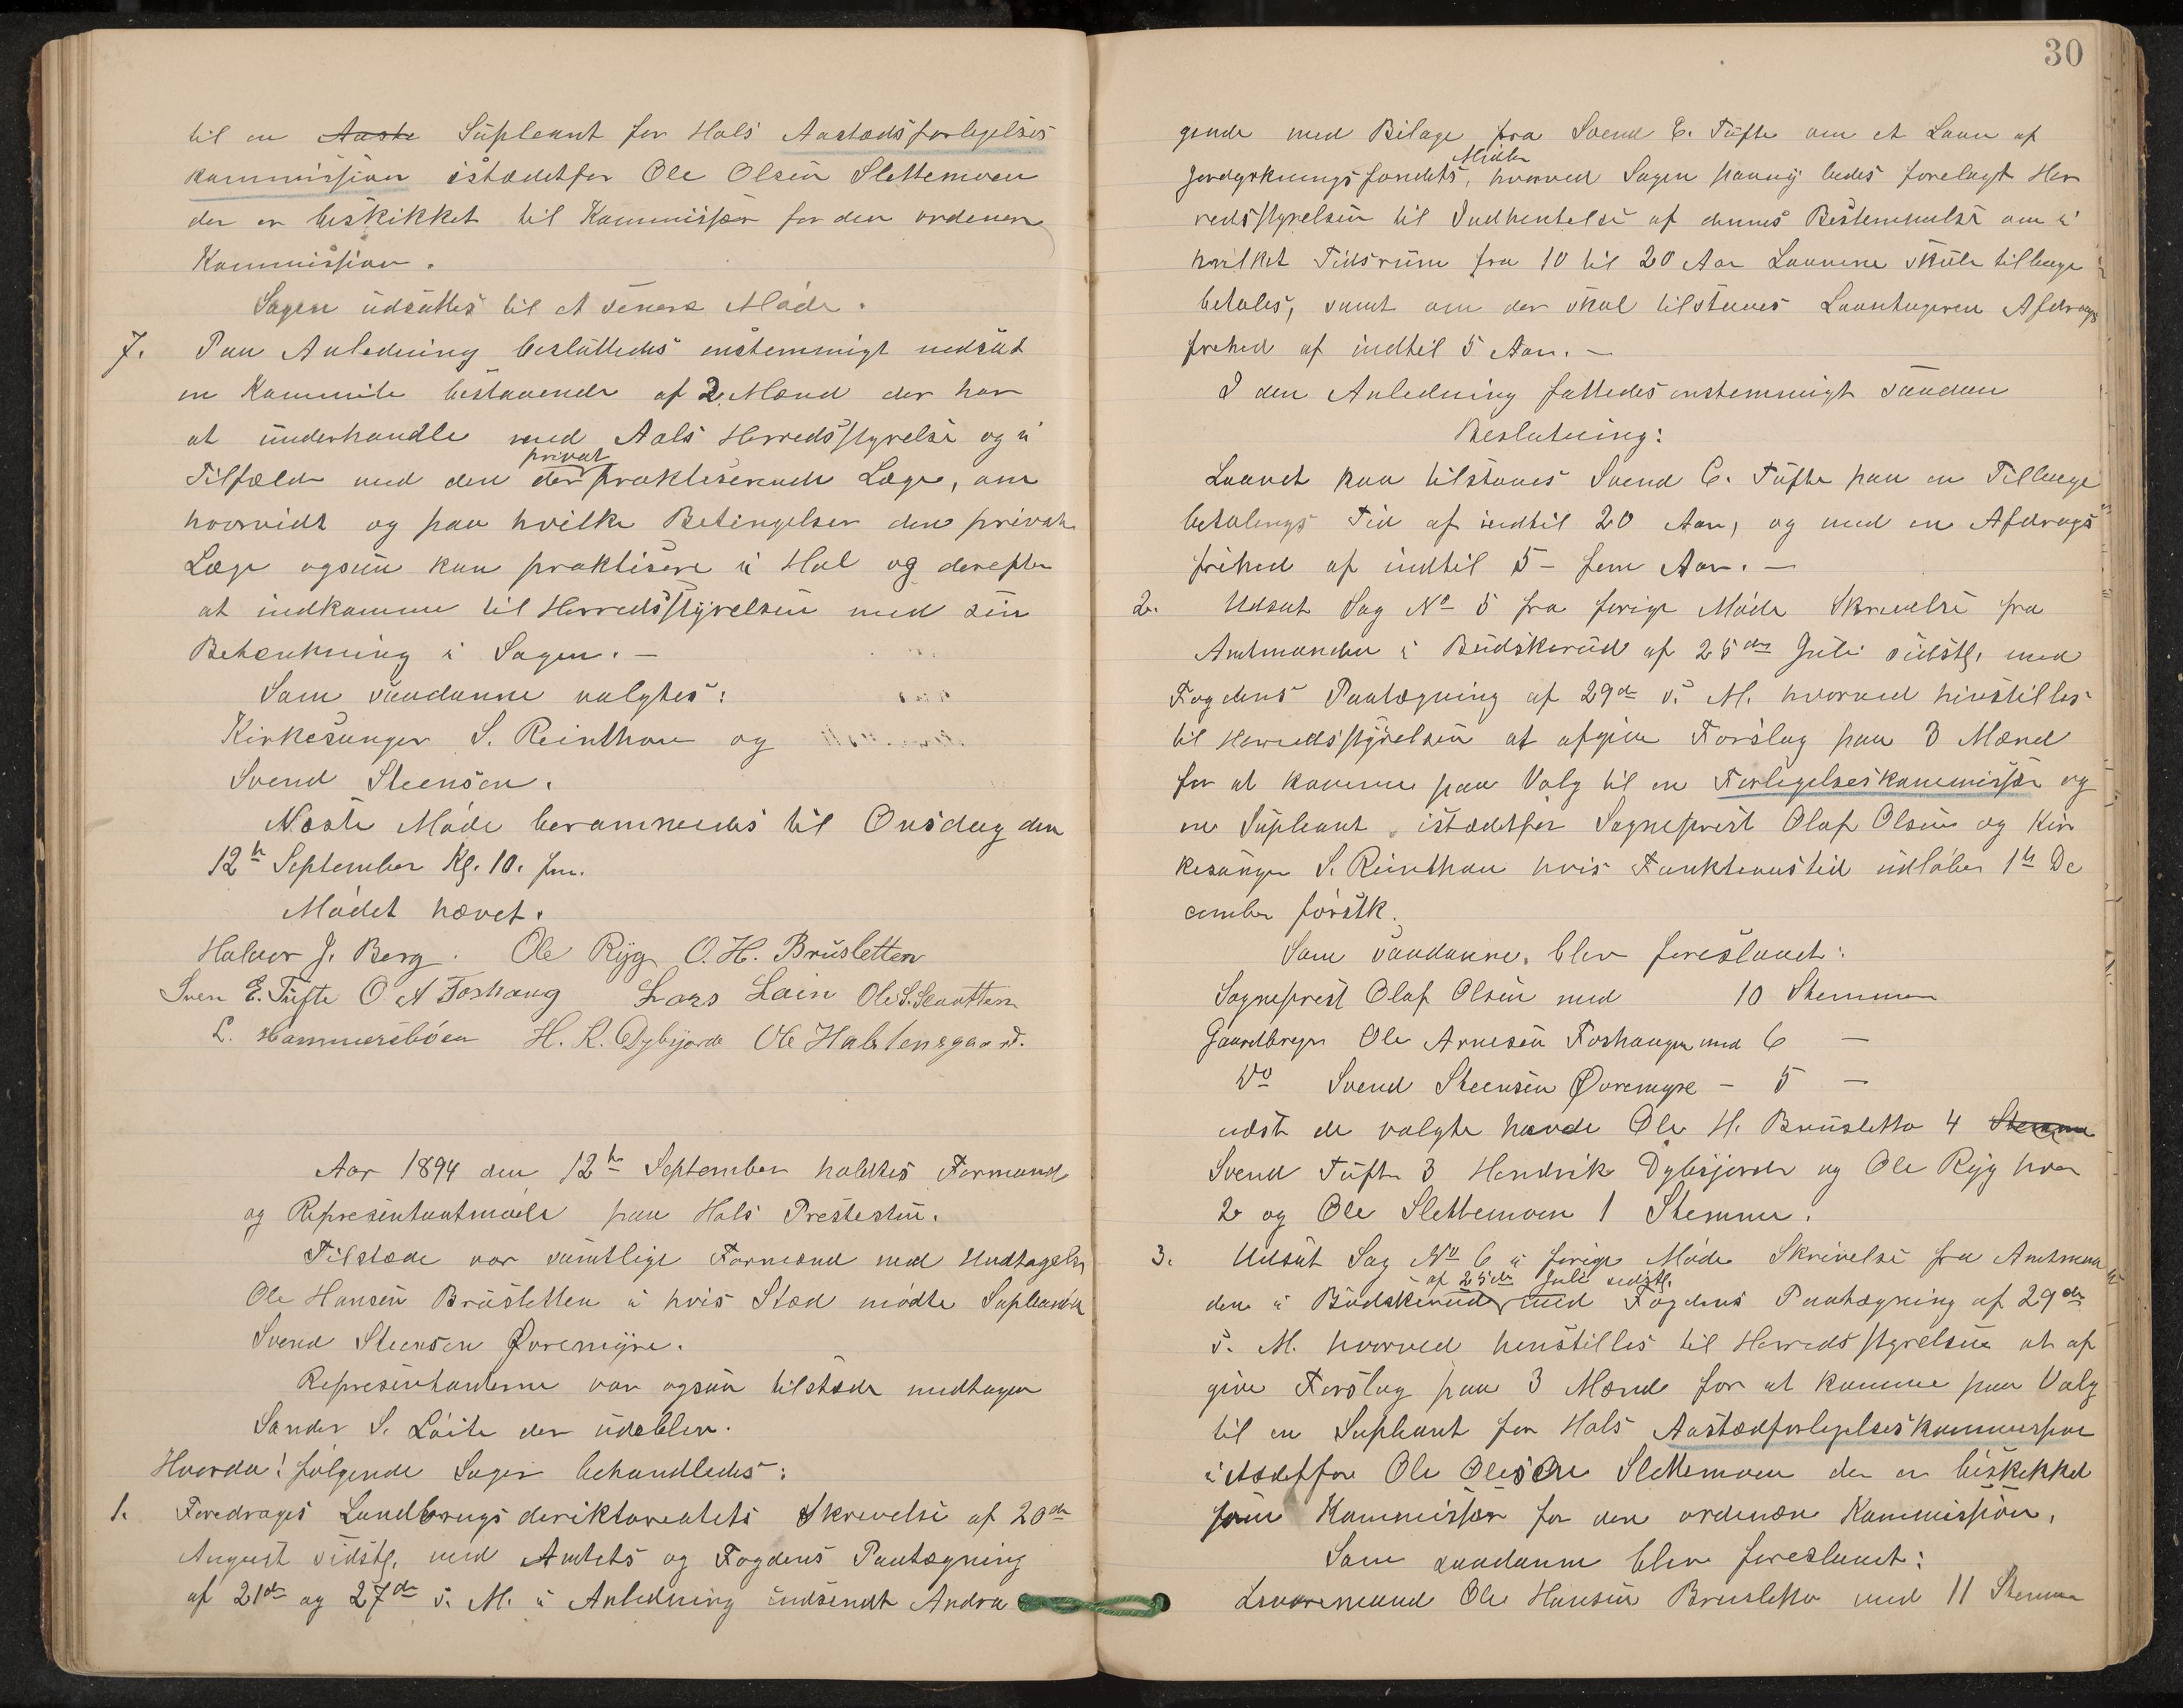 til en Aaste Supleant for Hols Aastedsforligelses
kommission istædetfor Ole Olsen Slettemoen
der er beskikket til Kommissær for den ordenære
Kommission.
Sagen udsattes til et senere Møde.
7. Paa Anledning besluttedes enstemmigt nedsat
en Kommite bestaaende af 2 Mænd der har
at underhandle med Aals Herredsstyrelse og i
privat
Tilfælde med den der praktiserende Læge, om
hvorvidt og paa hvilke Betingelser den private
Læge ogsaa kan praktisere i Hol og derefter
at indkomme til Herredsstyrelsen med sin
Betænkning i Sagen. —
Som saadanne valgtes:
Kirkesanger S. Reinthon og
Svend Steensen.
Næste Møde berammedes til Onsdag den
12te September Kl. 10. fm.
Mødet hævet.
Halvor J. Berg. Ole Ryg O. H. Brusletten
Sven E. Tufte O A Foshaug Lars Lain Ole S. Slaatten
L. Hammersbøen H. K. Dybsjorde Ole Halstensgaard.
Aar 1894 den 12te September holdtes Formand
og Representantmøde paa Hols Prestestue.
Tilstæde var samtlige Formænd med Undtagelse
Ole Hansen Brusletten i hvis Sted mødte Supleanten
Svend Steensen Øvremyre.
Representanterne var ogsaa tilstæde undtagen
Sander S. Løite der udeblev.
Hvorda: følgende Sager behandledes:
1. Foredroges Landbrugsdirektoreatets Skrivelse af 20de
August sidstl. med Amtets og Fogdens Paategning
af 21de og 27de s. M. i Anledning indsendt Andra
30
gende med Bilage fra Svend E. Tufte om et Laan af
Midler
Jordyrkningsfondets, hvorved Sagen paany bedes forelagt Her
redsstyrelsen til Indhentelse af dennes Bestemmelse om i
hvilket Tidsrum fra 10 til 20 Aar Laanene skule tilbage
betales, samt om der skal tilstaaes Laantageren Afdrags
frihed af indtil 5 Aar. —
I den Anledning fattedes enstemmigt saadan
Beslutning:
Laanet kan tilstaaes Svend E. Tufte paa en Tilbage
betalings Tid af indtil 20 Aar, og med en Afdrags
frihed af indtil 5 - fem Aar. —
2. Udsat Sag No 5 fra forige Møde Skrivelse fra
Amtmanden i Budskerud af 25de Juli sidstl. med
Fogdens Paategning af 29de s. M. hvorved hinstilles
til Herredsstyrelsen at afgive Forslag paa 3 Mænd
for at komme paa Valg til en Forligelseskommissær og
en Supleant istædetfor Sogneprest Olaf Olsen og Kir
kesanger S. Reinthon hvis Funktionstid udløber 1te De
cember førstk.
Som saadanne blev foreslaaet:
Sogneprest Olaf Olsen med 10 Stemmer
Gaardbruger Ole Arnesen Foshaugen med 6 —
Do Svend Steensen Øvremyre — 5 —
næst de valgte havde Ole H. Brusletto 4 Stemme
Svend Tufte 3 Hendrik Dybsjorde og Ole Ryg hver
2 og Ole Slettemoen 1 Stemme.
3. Udsat Sag No 6 i forige Møde Skrivelse fra Amtman
af 25de Juli sidstl.
den i Budskerud med Fogdens Paategning af 29de
s. M. hvorved henstilles til Herredsstyrelsen at af
give Forslag paa 3 Mænd for at komme paa Valg
til en Supleant for Hols Aastædforligelseskommission
istædetfor Ole Olesen Slettemoen der er beskikket
som Kommissær for den ordenære Kommission.
Som saadanne blev foreslaaet:
Lensmand Ole Hansen Brusletto med 11 Stemmer